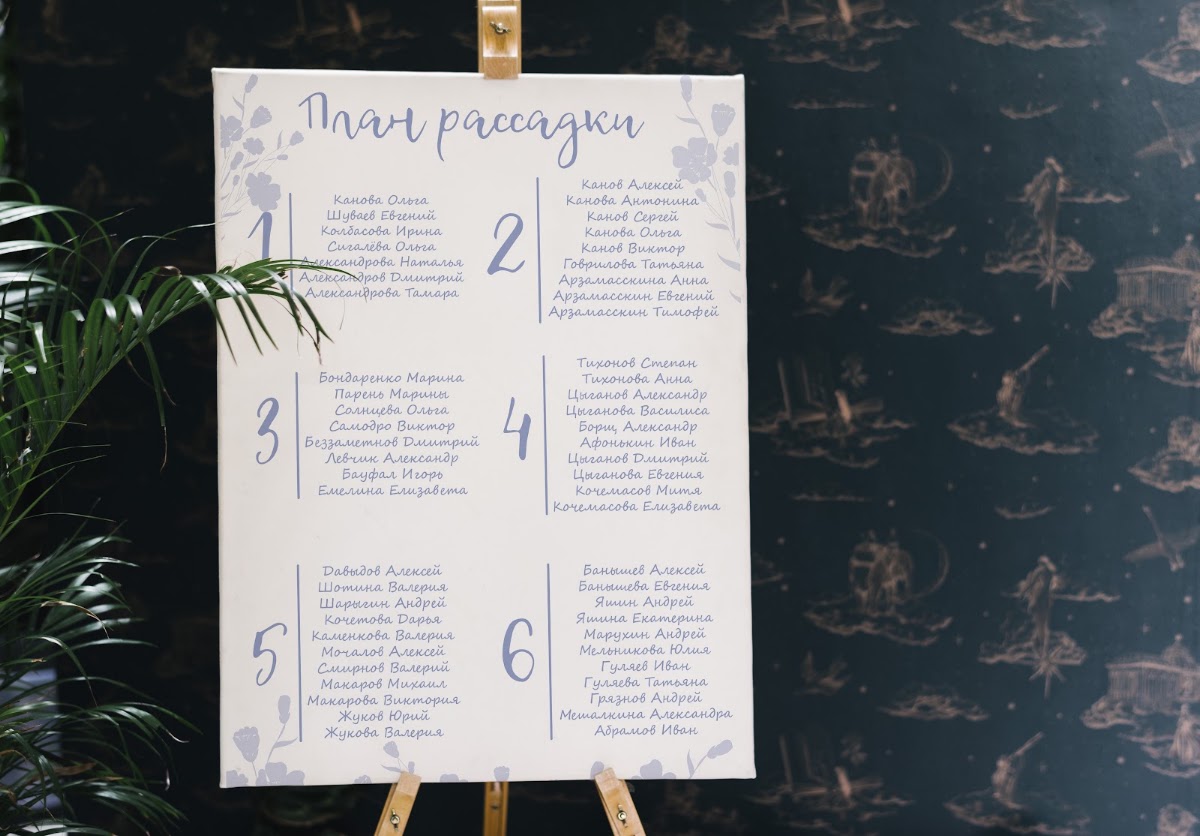 План рассадки
1
Канова Ольга
Шуваев Евгений
Колбасова Ирина
Сигалёва Ольга
Александрова Наталья
Александров Дмитрий
Александрова Тамара
2
Канов Алексей
Канова Антонина
Канов Сергей
Канова Ольга
Канов Виктор
Говрилова Татьяна
Арзамасскина Анна
Арзамасскин Евгений
Арзамасскин Тимофей
3
Бондаренко Марина
Парень Марины
Солнцева Ольга
Самодро Виктор
Беззаметнов Дмитрий
Левчик Александр
Бауфал Игорь
Емелина Елизавета
4
Тихонов Степан
Тихонова Анна
Цыганов Александр
Цыганова Василиса
Борщ Александр
Афонькин Иван
Цыганов Дмитрий
Цыганова Евгения
Кочемасов Митя
Кочемасова Елизавета
5
Давыдов Алексей
Шотина Валерия
Шарыгин Андрей
Кочетова Дарья
Каменкова Валерия
Мочалов Алексей
Смирнов Валерий
Макаров Михаил
Макарова Виктория
Жуков Юрий
Жукова Валерия
6
Банышев Алексей
Банышева Евгения
Яшин Андрей
Яшина Екатерина
Марухин Андрей
Мельникова Юлия
Гуляев Иван
Гуляева Татьяна
Грязнов Андрей
Мешалкина Александра
Абрамов Иван